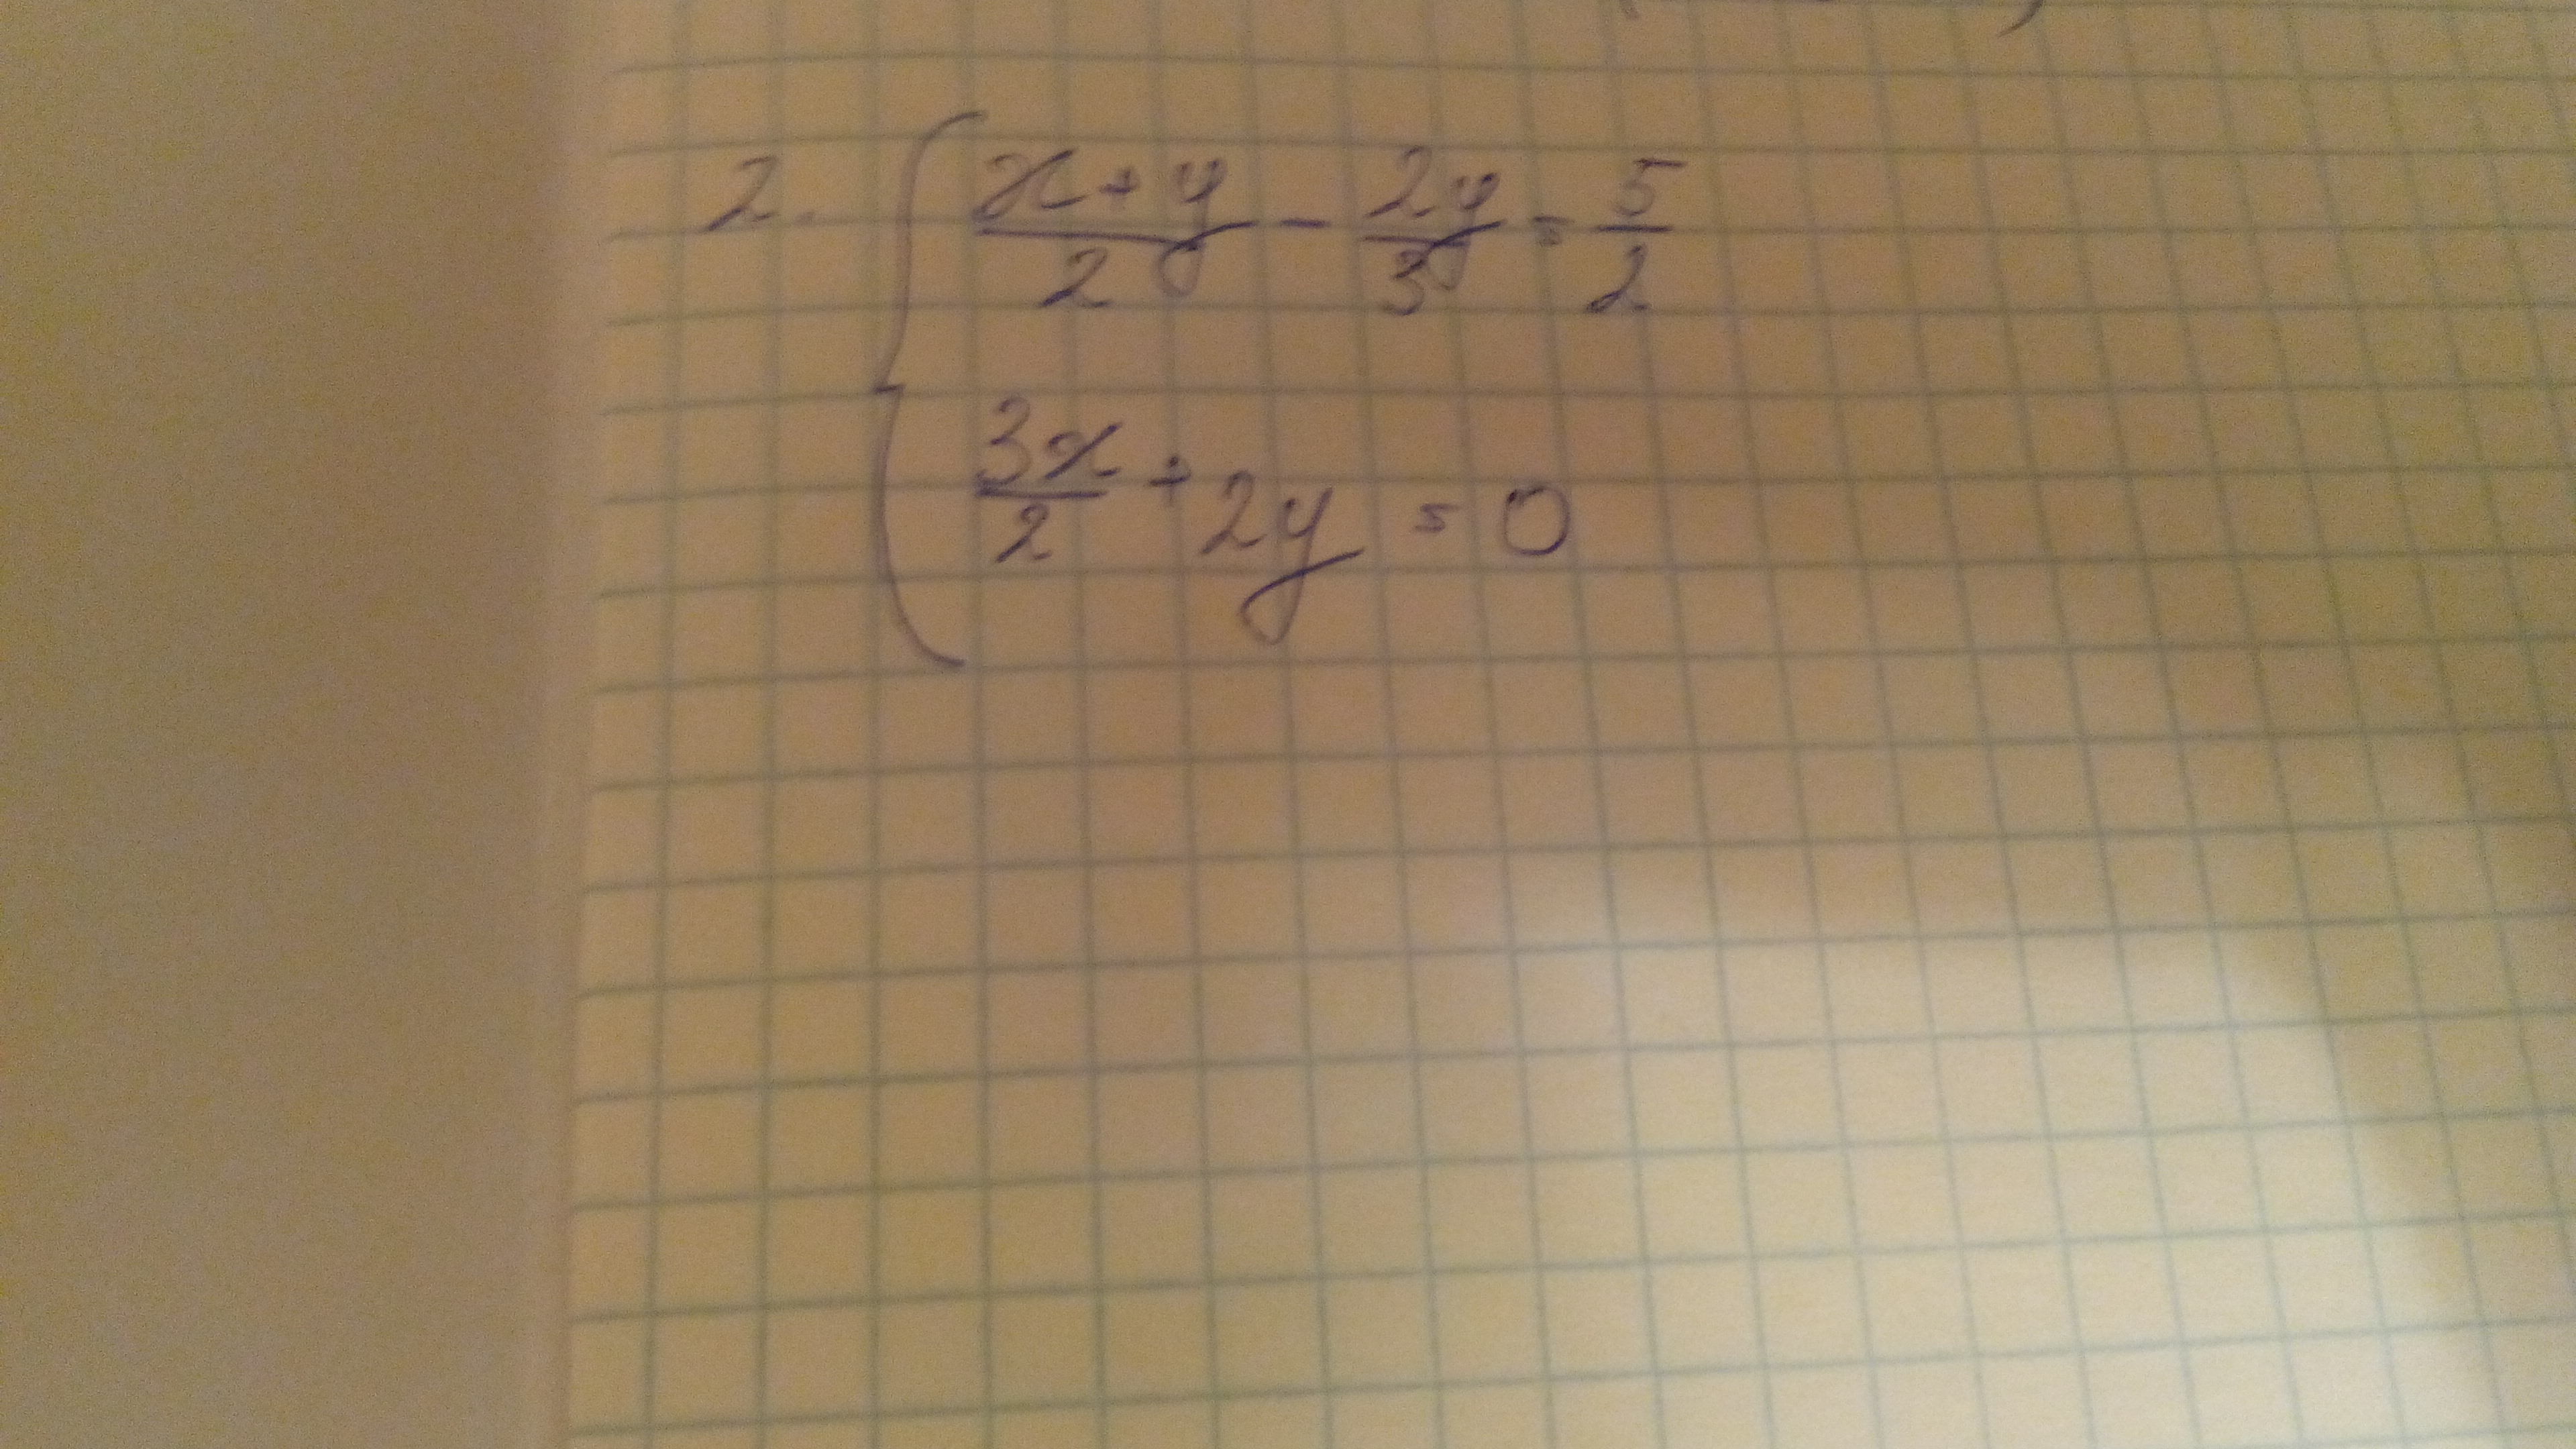 2. { (x+y)/2 - 2y/3 = 5/2
3x/2 + 2y = 0